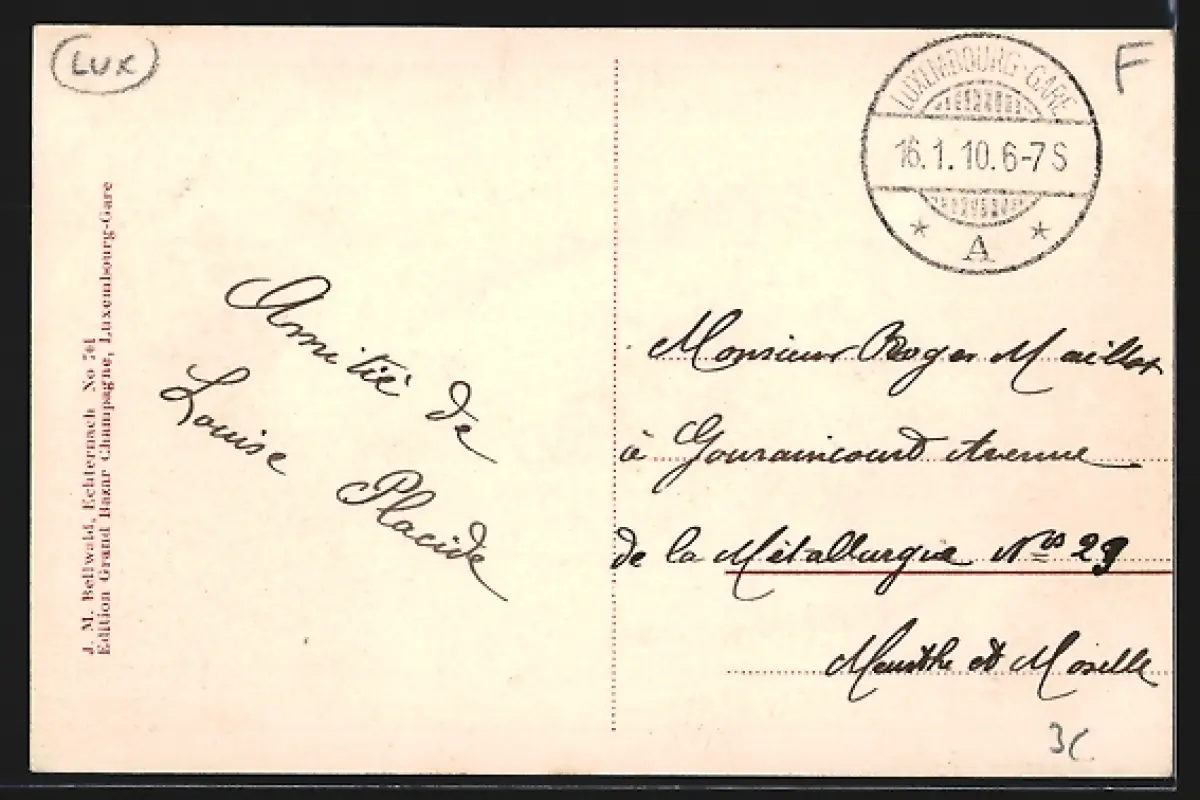 LUX
LUXEMBOURG-GARE
16.1.10.6-7 S
* A *
F
J. M. Bellwald, Echternach No 761
Edition Grand Bazar Champagne, Luxembourg-Gare
Amitié de
Louise Placide
Monsieur Roger Maillot
à Gouraincourt Avenue
de la Métallurgie Nos 29
Meurthe et Moselle